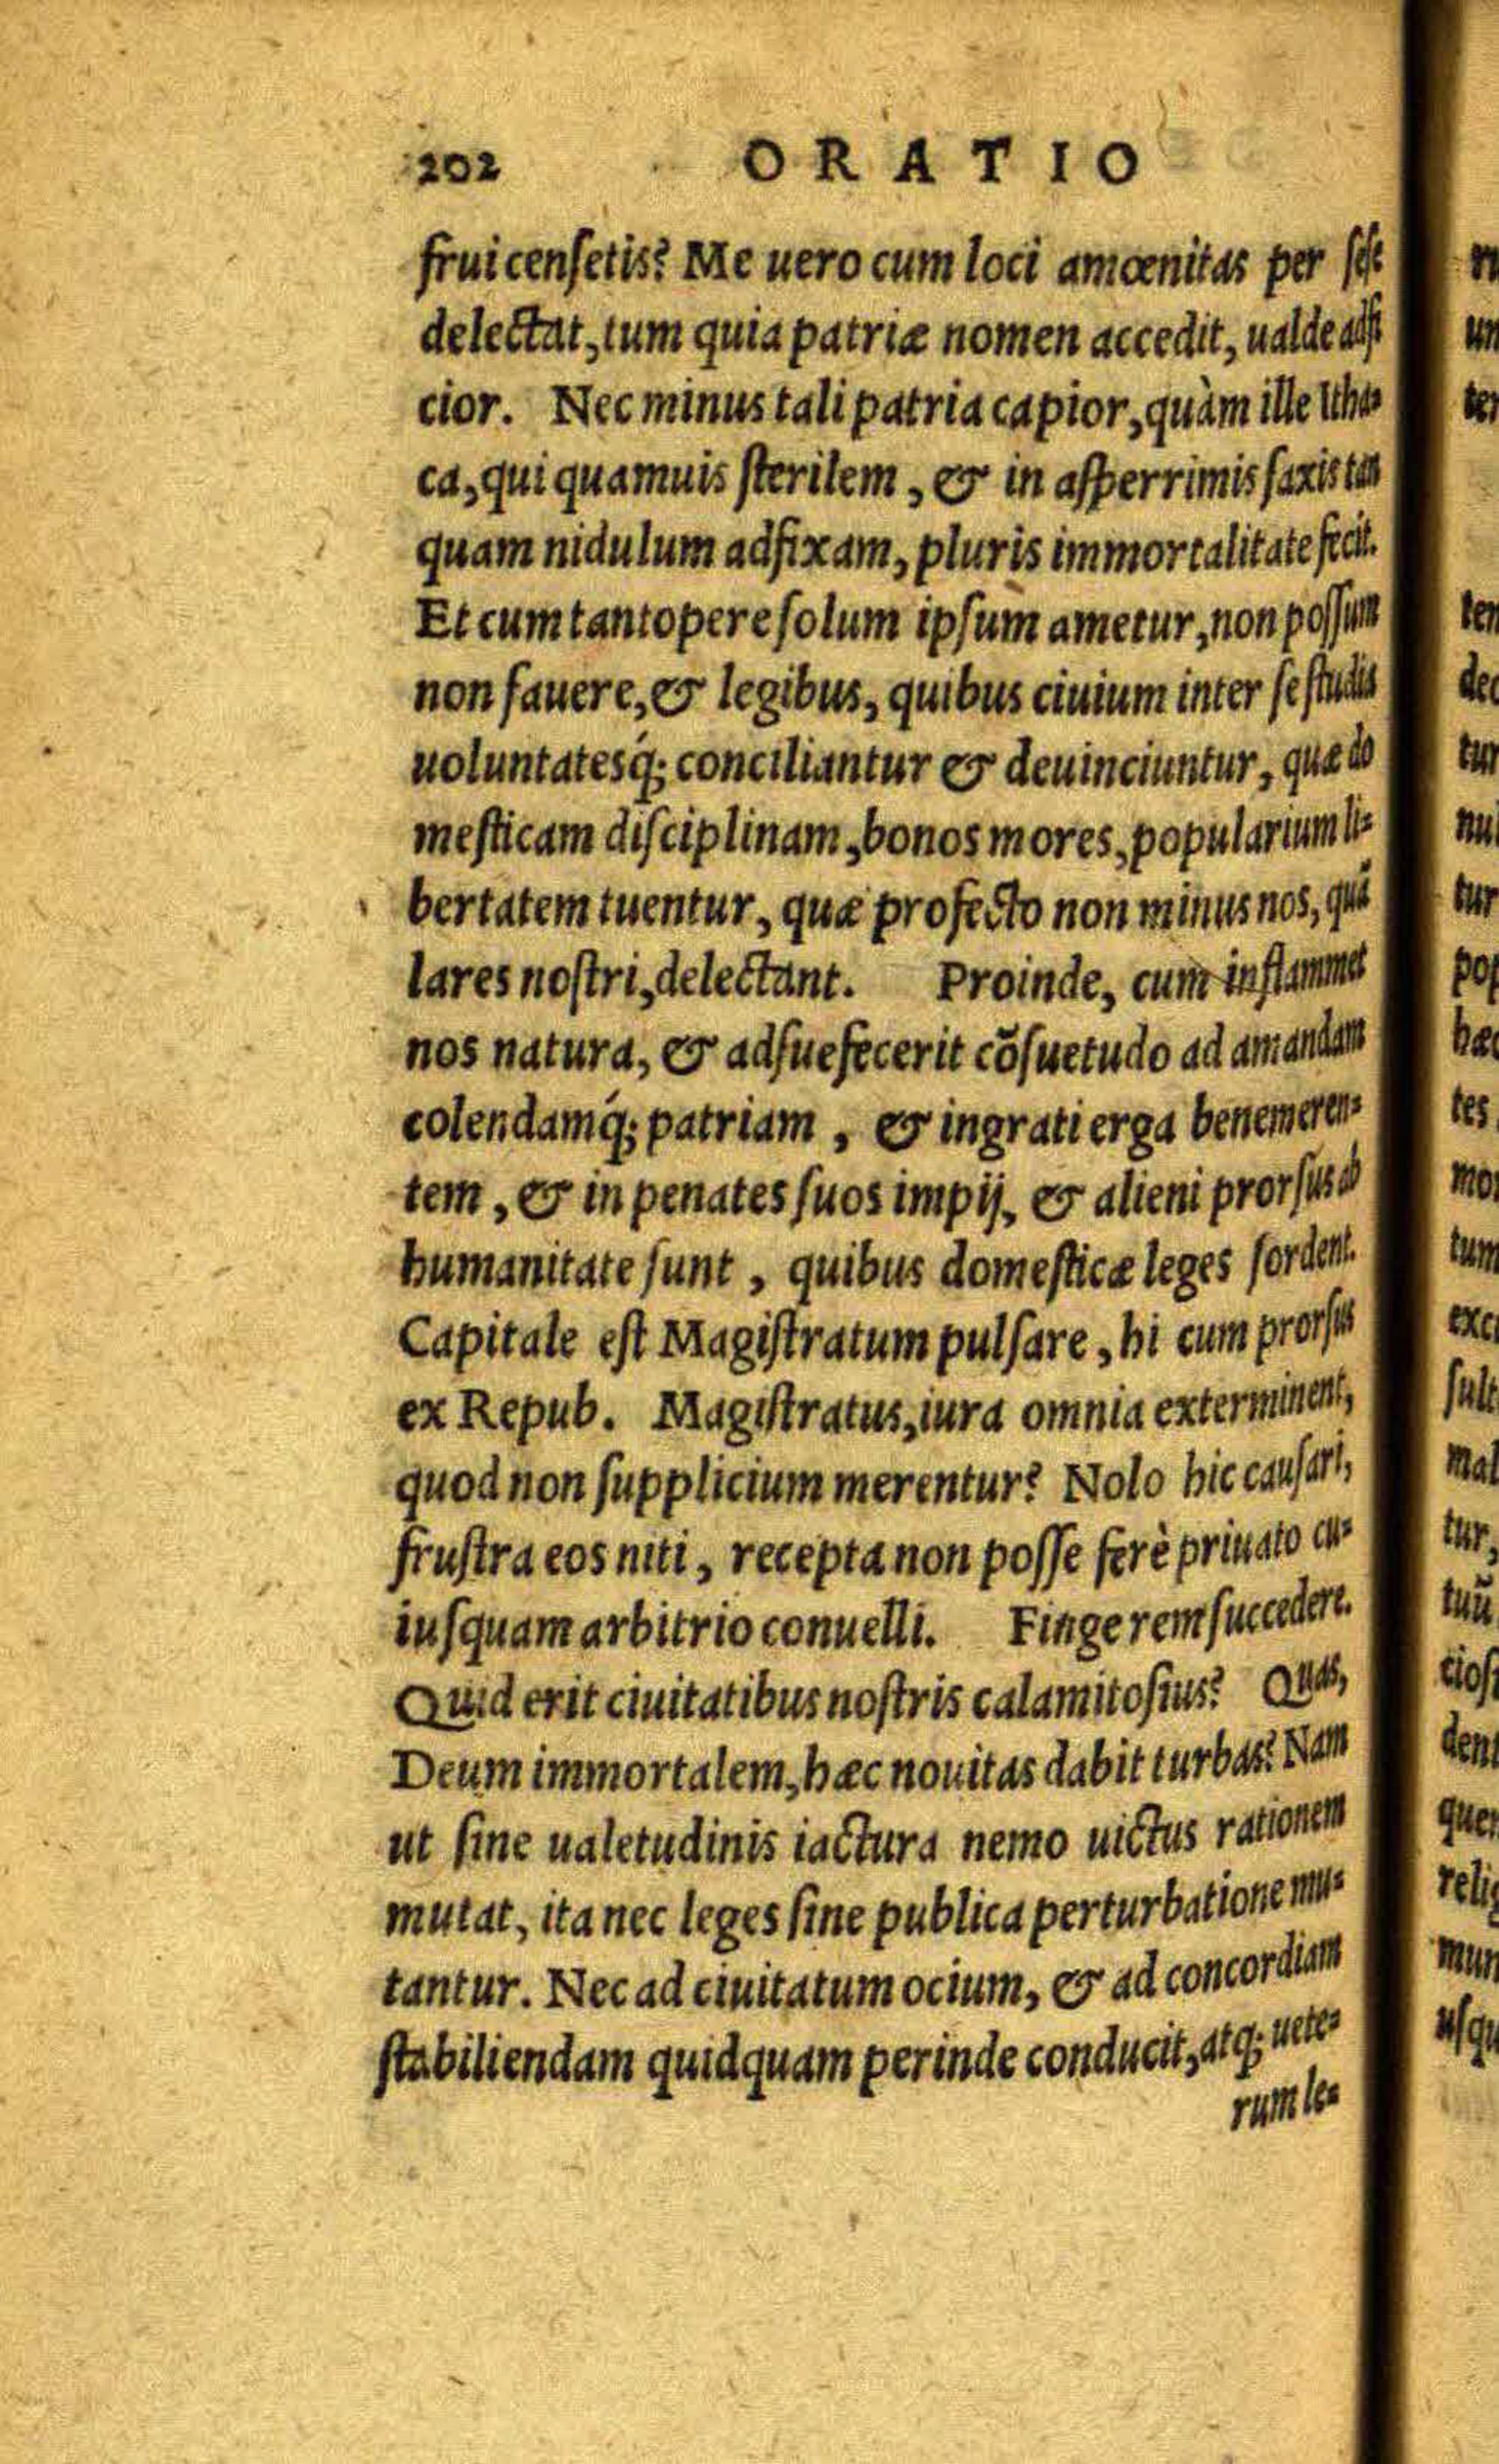 202 ORATIO
frui censetis? Me uero cum loci amœnitas per sese
delectat, tum quia patriæ nomen accedit, ualde adfi
cior. Nec minus tali patria capior, quàm ille Itha-
ca, qui quamuis sterilem, & in asperrimis saxis tan
quam nidulum adfixam, pluris immortalitate fecit.
Et cum tantopere solum ipsum ametur, non possum
non fauere, & legibus, quibus ciuium inter se studia
uoluntatesq́; conciliantur & deuinciuntur, quæ do
mesticam disciplinam, bonos mores, popularium li-
bertatem tuentur, quæ profecto non minus nos, quã
lares nostri, delectant. Proinde, cum inflammet
nos natura, & adsuefecerit cõsuetudo ad amandam
colendamq́; patriam, & ingrati erga benemeren-
tem, & in penates suos impij, & alieni prorsus ab
humanitate sunt, quibus domesticæ leges sordent.
Capitale est Magistratum pulsare, hi cum prorsus
ex Repub. Magistratus, iura omnia exterminent,
quod non supplicium merentur? Nolo hic causari,
frustra eos niti, recepta non posse ferè priuato cu-
iusquam arbitrio conuelli. Finge rem succedere.
Quid erit ciuitatibus nostris calamitosius? Quas,
Deum immortalem, hæc nouitas dabit turbas? Nam
ut sine ualetudinis iactura nemo uictus rationem
mutat, ita nec leges sine publica perturbatione mu-
tantur. Nec ad ciuitatum ocium, & ad concordiam
stabiliendam quidquam perinde conducit, atq; uete-
rum le-